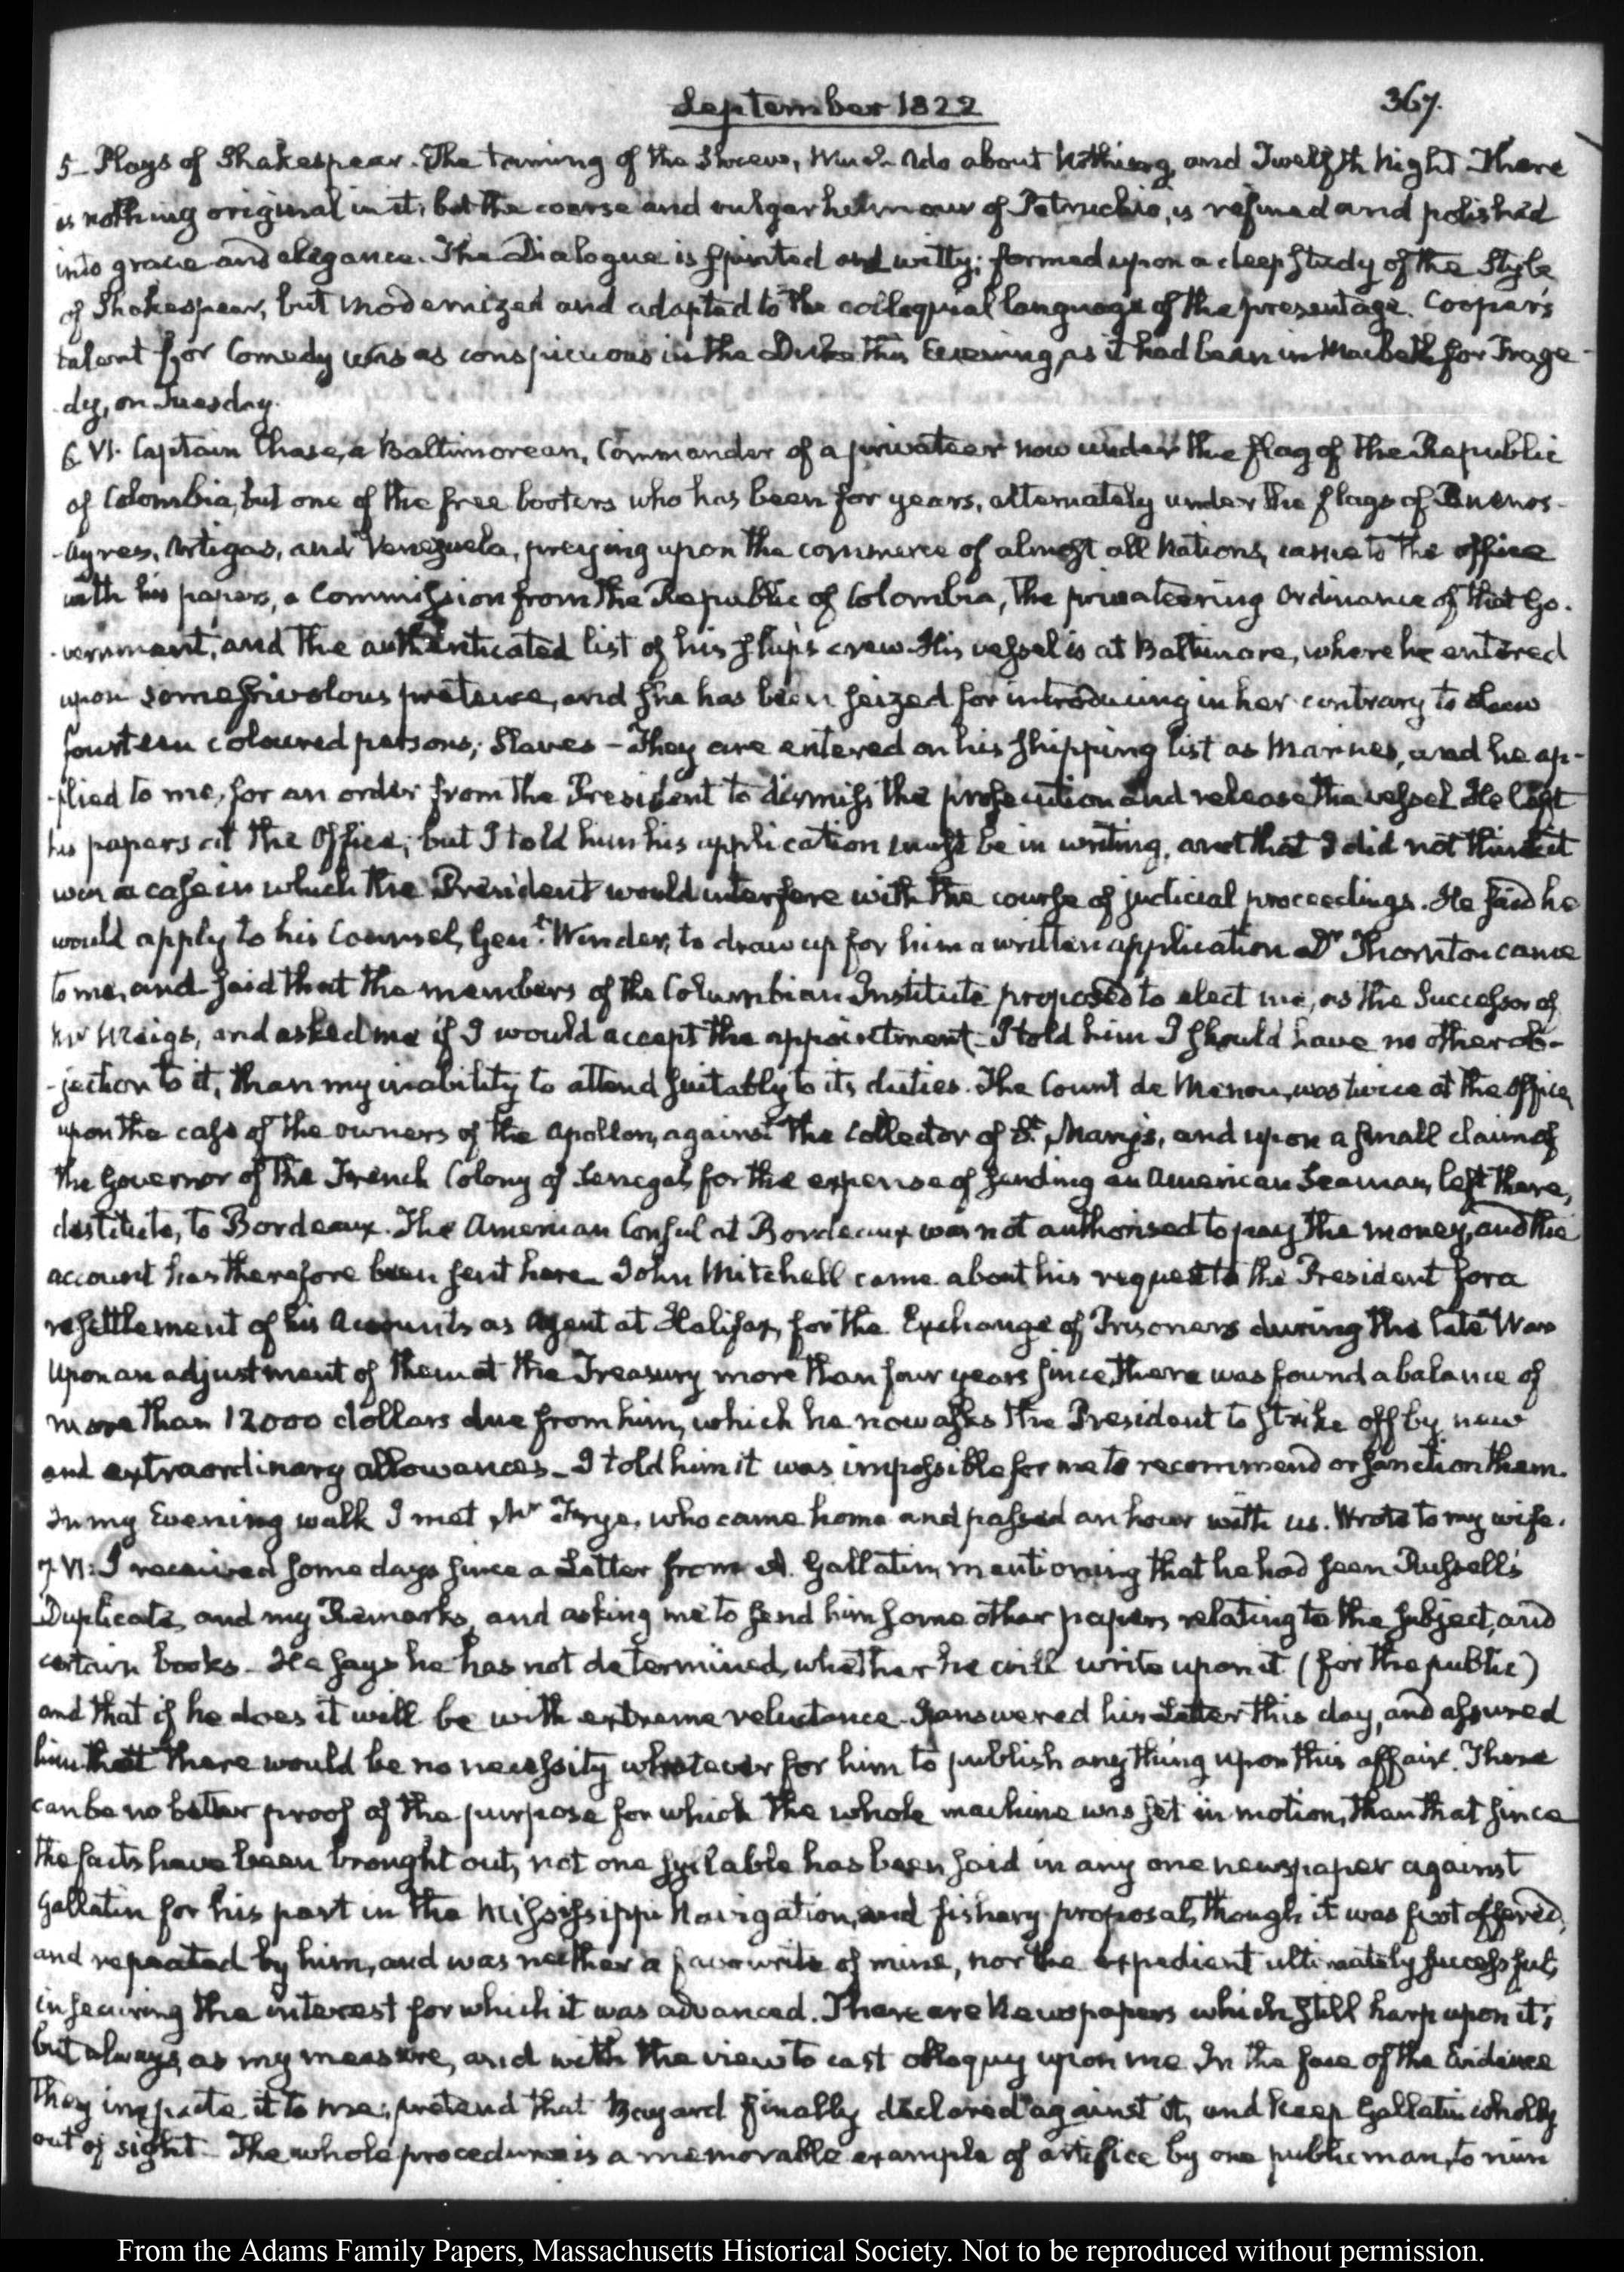 September 1822
367.
5- Plays of Shakespear. The taming of the Shrew, Much Ado about Nothing, and Twelfth Night. There
is nothing original in it; but the coarse and vulgar humour of Petruchio, is refined and polished
into grace and elegance. The Dialogue is spirited and witty; formed upon a deep study of the Style
of Shakespear, but modernized and adapted to the colloquial language of the present age. Cooper's
talent for Comedy was as conspicuous in the Duke this Evening, as it had been in Macbeth for Trage-
dy, on Tuesday.
6. VI. Captain Chase, a Baltimorean, Commander of a privateer now under the flag of the Republic
of Colombia, but one of the free booters who has been for years, alternately under the flags of Buenos-
-Ayres, Artigas, and Venezuela, preying upon the commerce of almost all Nations, came to the office
with his papers, a Commission from the Republic of Colombia, the privateering Ordinance of that Go-
-vernment, and the authenticated list of his ship's crew. His vessel is at Baltimore, where he entered
upon some frivolous pretence, and she has been seized for introducing in her contrary to Law
fourteen coloured persons; Slaves - They are entered on his shipping list as Marines, and he ap-
-plied to me, for an order from the President to dismiss the prosecution and release the vessel. He left
his papers at the Office; but I told him his application must be in writing, and that I did not think it
was a case in which the President would interfere with the course of judicial proceedings. He said he
would apply to his Counsel, Genl. Winder, to draw up for him a written application. Dr. Thornton came
to me, and said that the members of the Columbian Institute proposed to elect me, as the Successor of
Mr Meigs, and asked me if I would accept the appointment - I told him I should have no other ob-
-jection to it, than my inability to attend suitably to its duties. The Count de Menou, was twice at the Office,
upon the case of the owners of the Apollon, against the Collector of St. Mary's, and upon a small claim of
the Governor of the French Colony of Senegal, for the expense of sending an American Seaman, left there,
destitute, to Bordeaux. The American Consul at Bordeaux was not authorised to pay the money, and the
account has therefore been sent here - John Mitchell came about his request to the President for a
resettlement of his Accounts as Agent at Halifax, for the Exchange of Prisoners during the late War
Upon an adjustment of them at the Treasury more than four years since, there was found a balance of
more than 12000 dollars due from him, which he now asks the President to strike off by new
and extraordinary allowances - I told him it was impossible for me to recommend or sanction them.
In my Evening walk I met Mr Frye, who came home and passed an hour with us. Wrote to my wife.
7. VI: I received some days since a Letter from A. Gallatin, mentioning that he had seen Russell's
Duplicate, and my Remarks, and asking me to send him some other papers relating to the subject, and
certain books - He says he has not determined, whether he will write upon it (for the public)
and that if he does it will be with extreme reluctance - I answered his Letter this day, and assured
him that there would be no necessity whatever for him to publish any thing upon this affair. There
can be no better proof of the purpose for which the whole machine was set in motion, than that since
the facts have been brought out, not one syllable has been said in any one newspaper against
Gallatin for his part in the Mississippi Navigation, and fishery proposal, though it was first offered,
and repeated by him, and was neither a favourite of mine, nor the expedient ultimately successful,
in securing the interest for which it was advanced. There are Newspapers which still harp upon it;
but always, as my measure, and with the view to cast obloquy upon me. In the face of the Evidence
they impute it to me; pretend that Bayard finally declared against it, and keep Gallatin wholly
out of sight - The whole procedure is a memorable example of artifice by one public man, to ruin
From the Adams Family Papers, Massachusetts Historical Society. Not to be reproduced without permission.